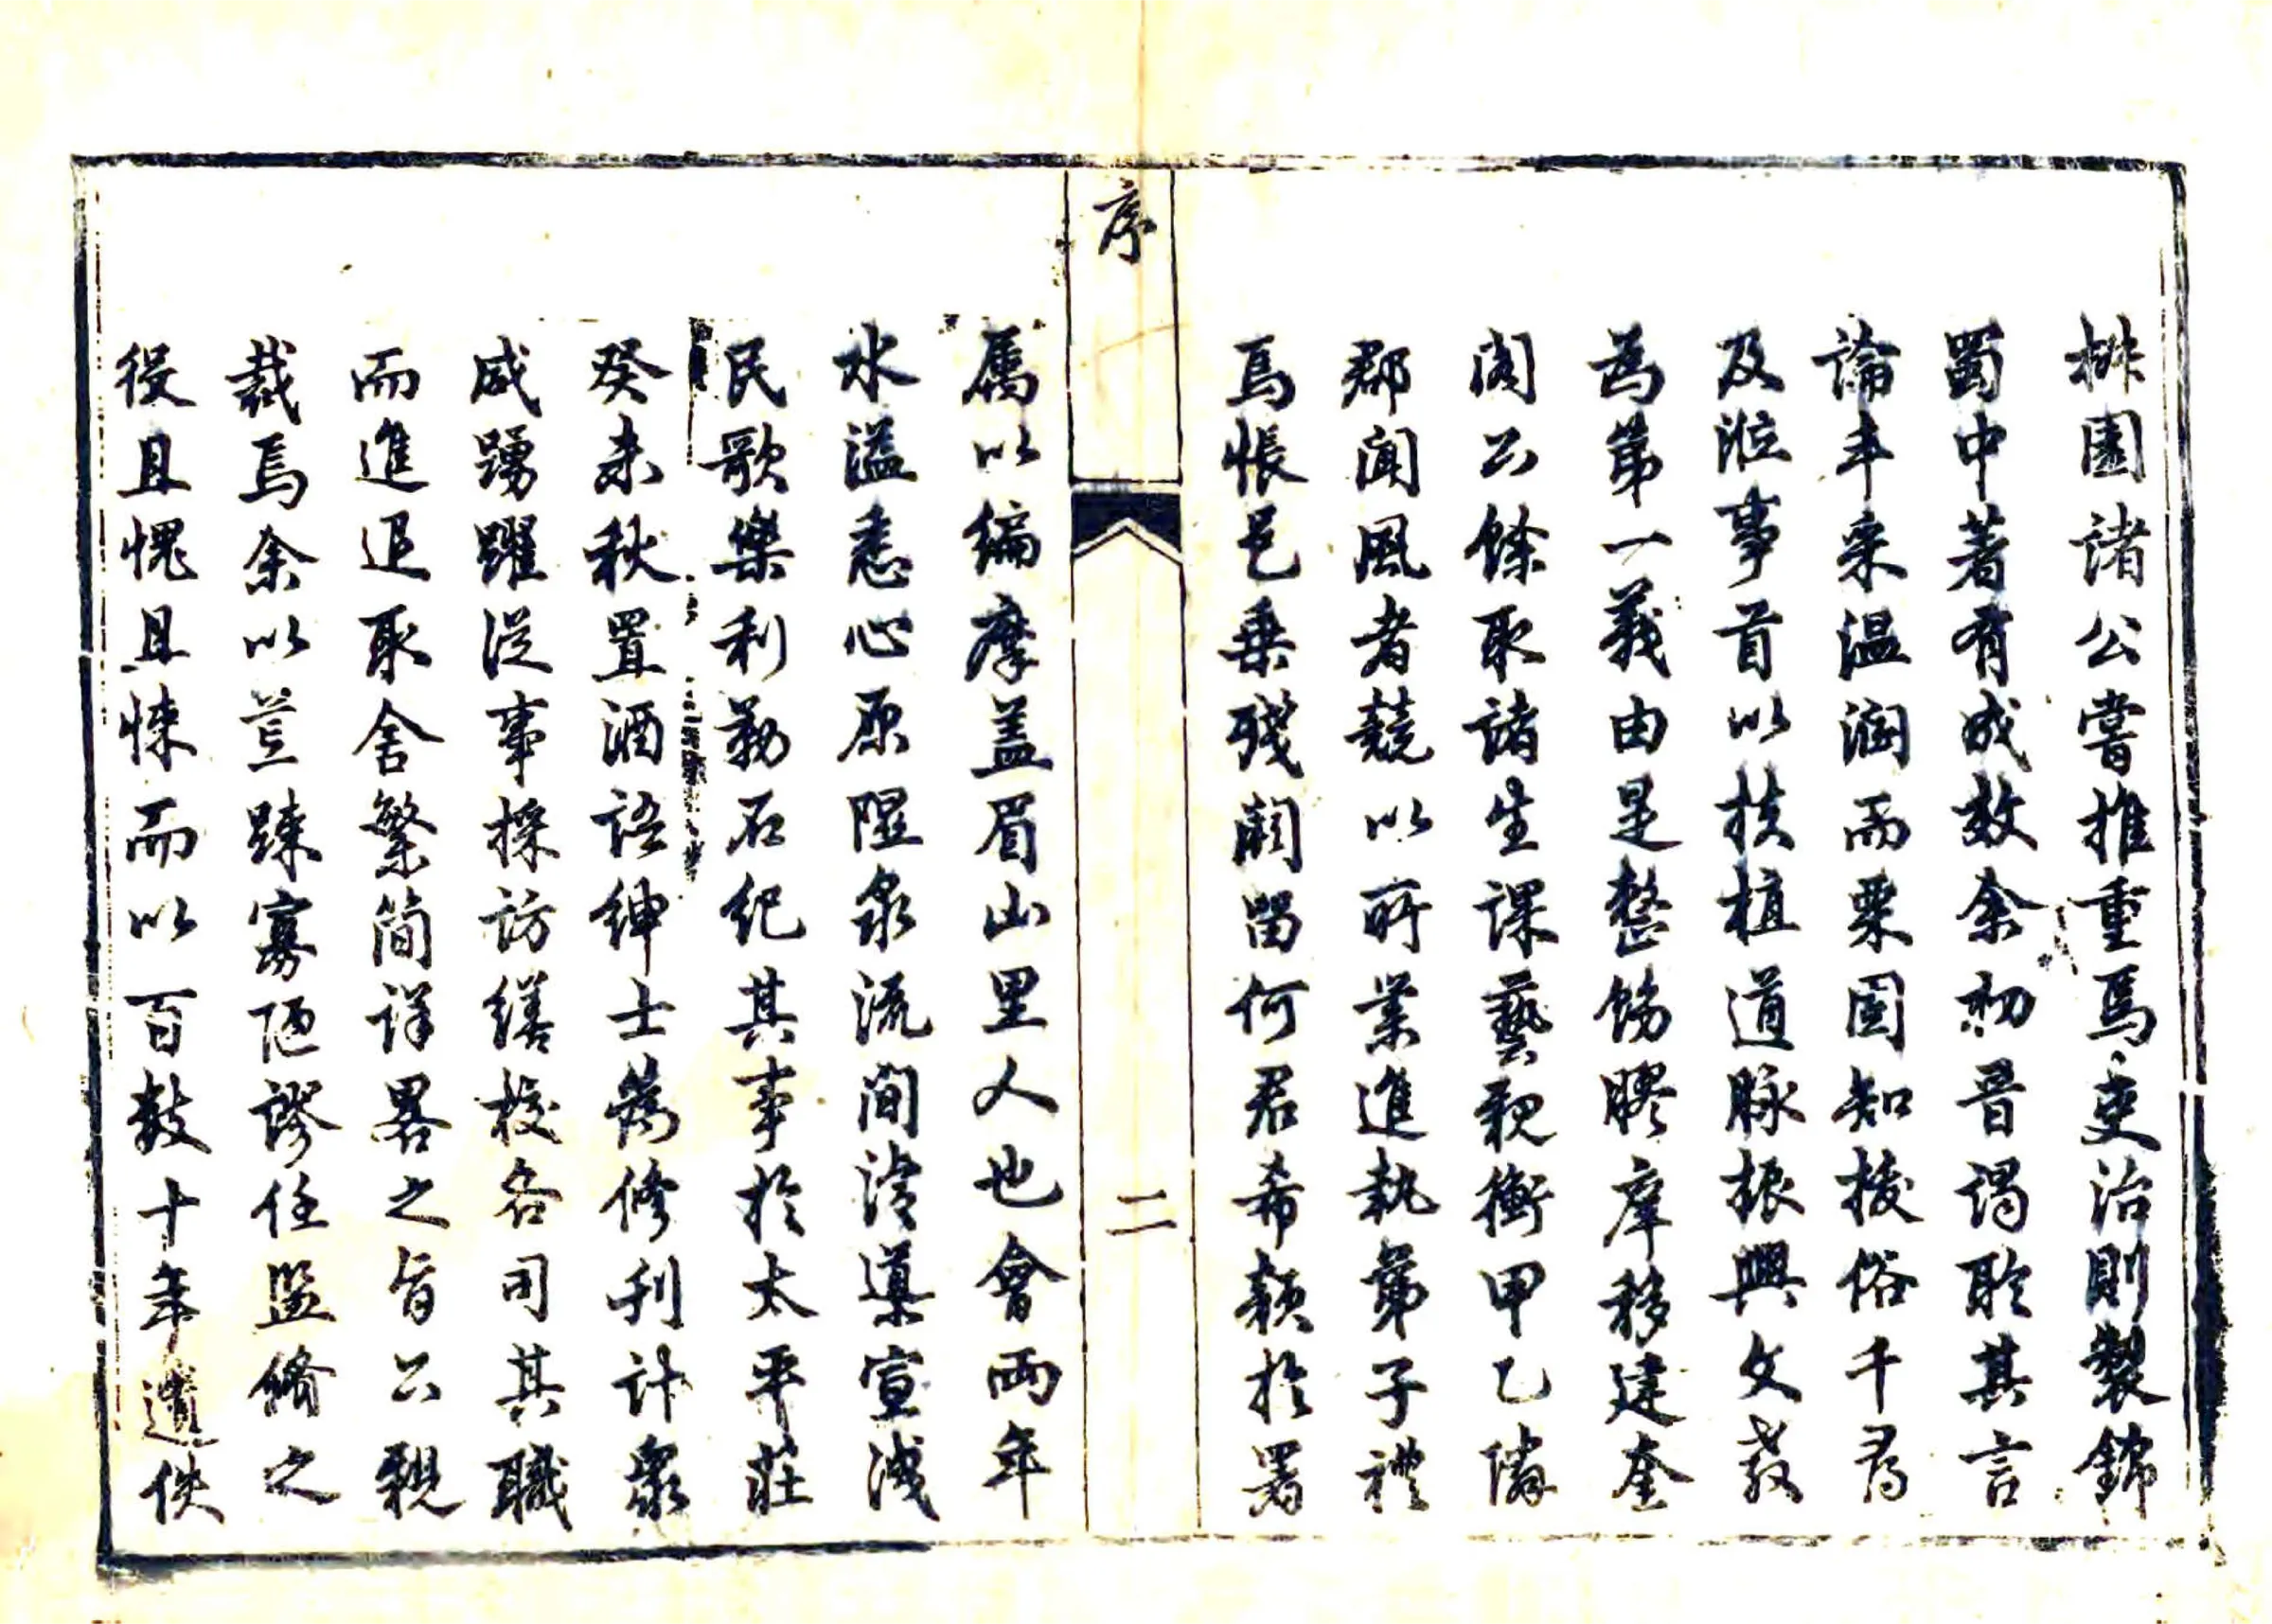 拼園諸公嘗推重焉吏治則製錦
蜀中著有成效余初晉謁聆其言
論丰采温潤而栗固知拔俗千尋
及涖事首以扶植道脉振興文教
為第一義由是整飭膠庠移建奎
閣公餘取諸生課藝親衡甲乙隣
郡聞風者競以所業進執弟子禮
焉悵邑乗殘闕留何君希顏於署
序
二
屬以編摩盖眉山里人也會両年
水溢悉心原隰泉流間濬導宣洩
民歌樂利勒石紀其事於太平莊
癸未秋置酒語紳士籌修刋計衆
咸踴躍從事採訪繕校各司其職
而進退取舍繁簡詳畧之旨公親
裁焉余以荒踈寡陋謬任監脩之
役且愧且悚而以百數十年遺佚